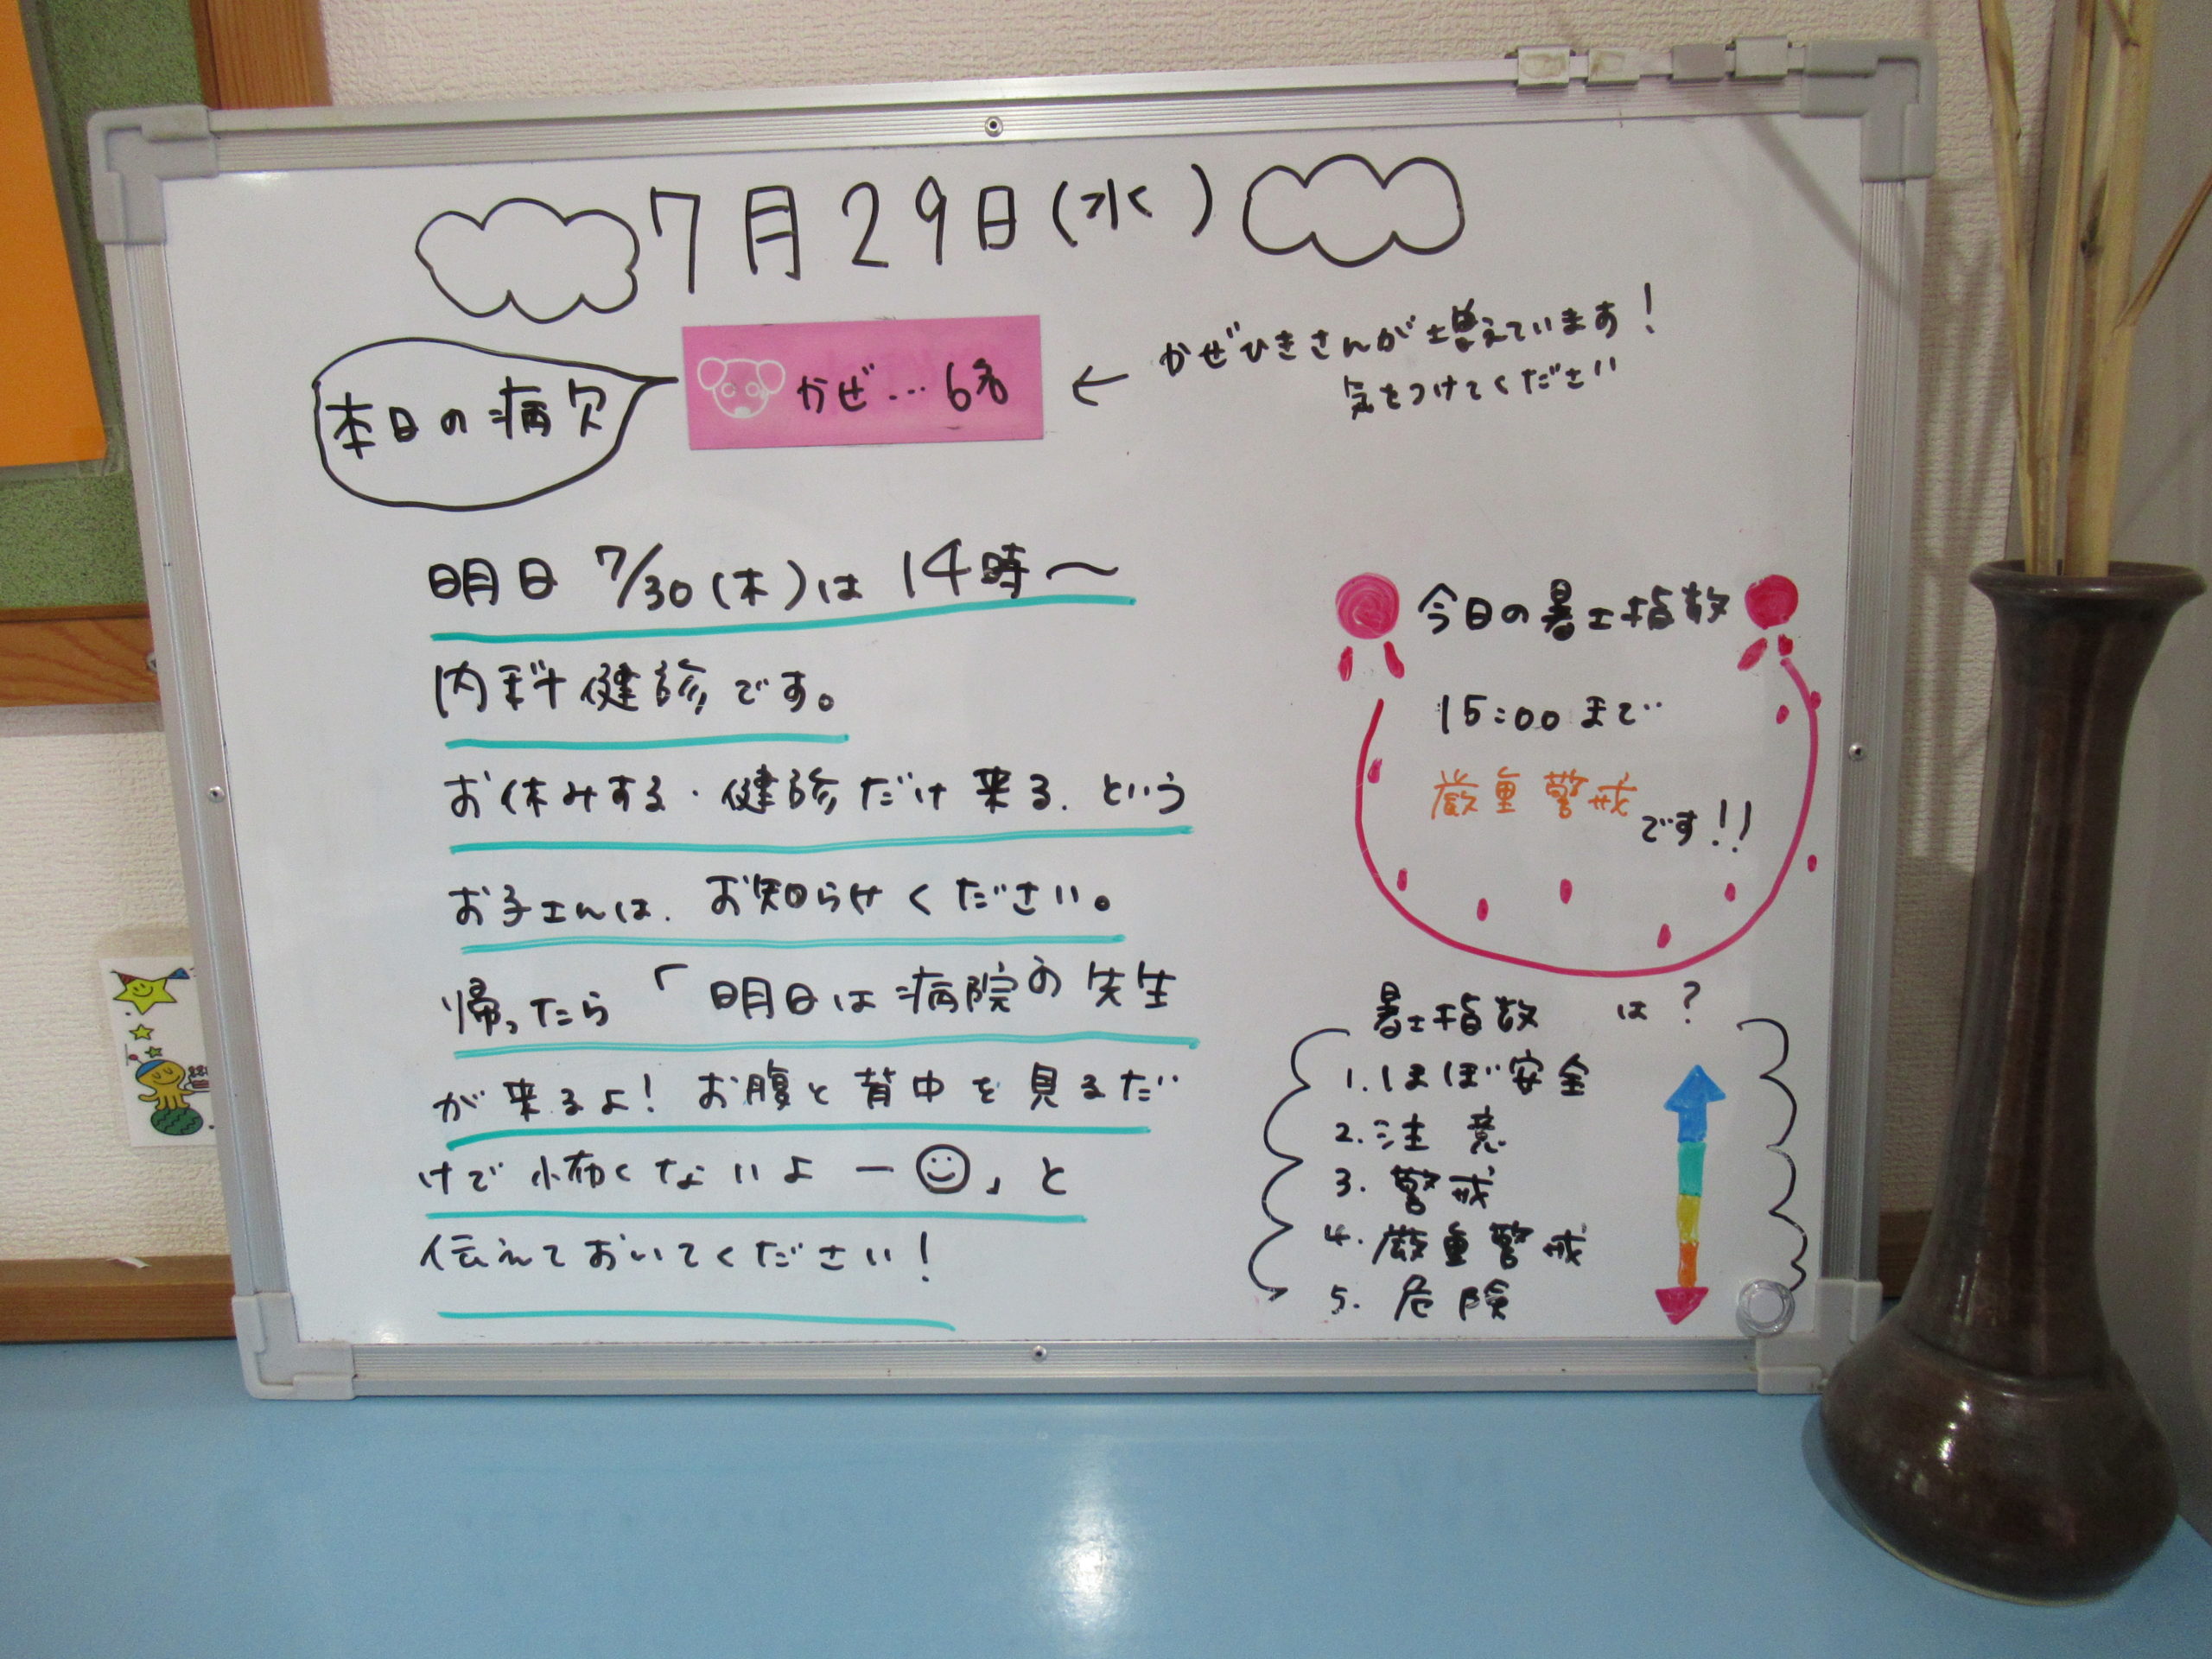 7月29日(水)
本日の病欠
かぜ…6名
← かぜひきさんが増えています!
気をつけてください
明日 7/30(木)は 14時〜
内科健診です。
お休みする・健診だけ来る、という
お子さんは、お知らせください。
帰ったら「明日は病院の先生
が来るよ!お腹と背中を見るだ
けで怖くないよー☺」と
伝えておいてください!
今日の暑さ指数
15:00まで
厳重警戒です!!
暑さ指数は?
1.ほぼ安全
2.注意
3.警戒
4.厳重警戒
5.危険